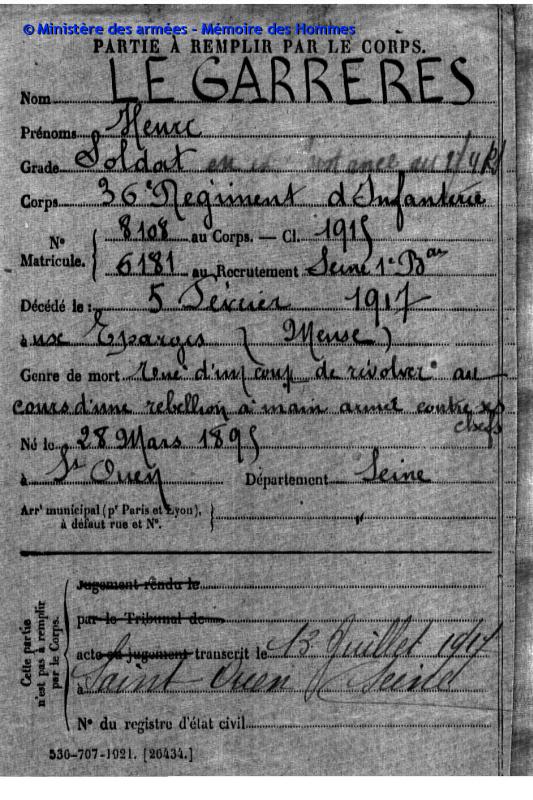 © Ministère des armées - Mémoire des Hommes
PARTIE À REMPLIR PAR LE CORPS.
Nom LE GARRERES
Prénoms Henri
Grade Soldat
Corps 36e Regiment d'Infanterie
N° Matricule. 8108 au Corps. — Cl. 1915
6181 au Recrutement Seine 1er Bau
Décédé le : 5 Février 1917
à ux Eparges (Meuse)
Genre de mort Tué d'un coup de révolver au
cours d'une rebellion à main armée contre ses
chefs
Né le 28 Mars 1895
à St Ouen Département Seine
Arrt municipal (pr Paris et Lyon),
à défaut rue et N°. "
Cette partie
n'est pas à remplir
par le Corps.
Jugement rendu le
par le Tribunal de
acte ou jugement transcrit le 13 Juillet 1917
à Saint-Ouen (Seine)
N° du registre d'état civil
536-707-1921. [26434.]